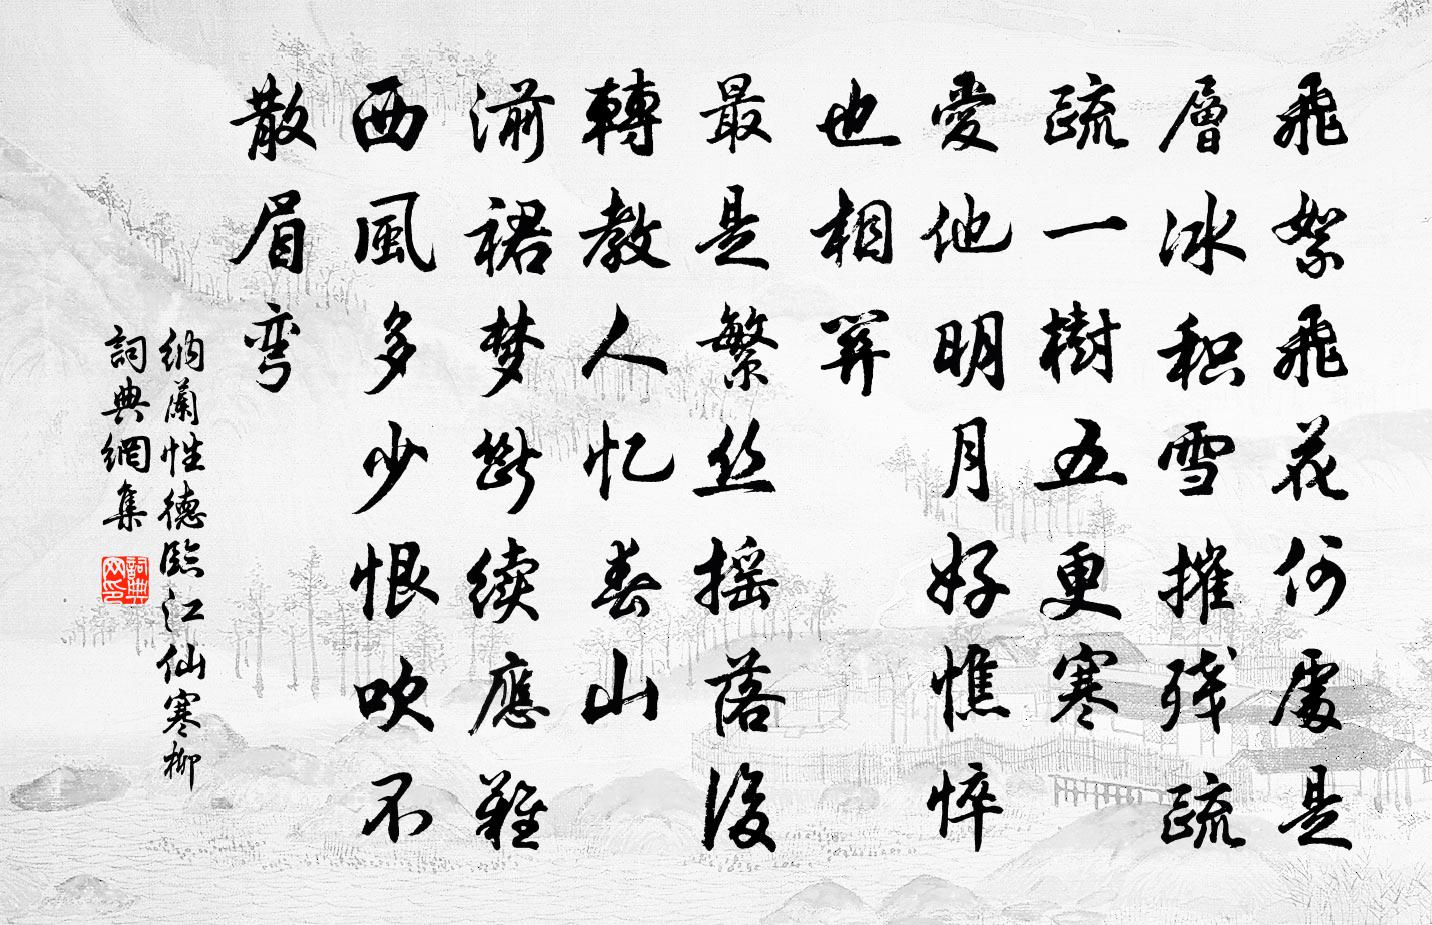 飛絮飛花何處是
層冰积雪摧残疏
疏一樹五更寒
愛他明月好憔悴
也相關
最是繁丝摇落後
轉教人忆春山
湔裙梦斷续應難
西風多少恨吹不
散眉弯
納蘭性德臨江仙寒柳
詞典網集
詞典网印